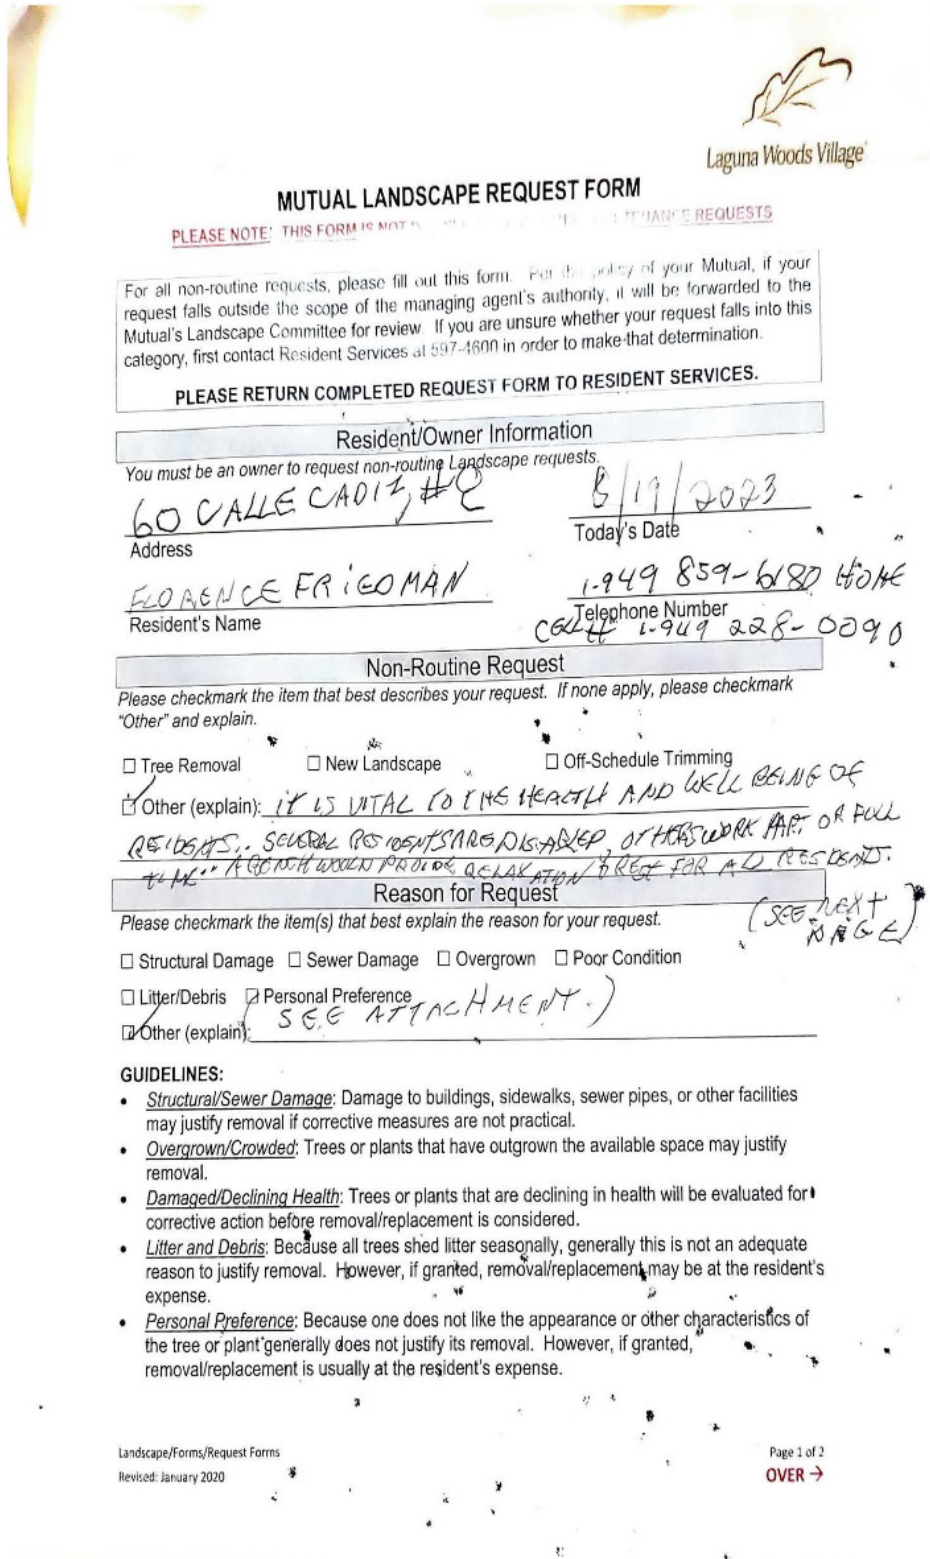 Laguna Woods Village
MUTUAL LANDSCAPE REQUEST FORM
PLEASE NOTE: THIS FORM IS NOT REQUESTS
For all non-routine requests, please fill out this form. Per the policy of your Mutual, if your
request falls outside the scope of the managing agent's authority, it will be forwarded to the
Mutual's Landscape Committee for review. If you are unsure whether your request falls into this
category, first contact Resident Services at 597-4600 in order to make that determination.
PLEASE RETURN COMPLETED REQUEST FORM TO RESIDENT SERVICES.
Resident/Owner Information
You must be an owner to request non-routine Landscape requests.
60 CALLE CADIZ, #Q /19/2023
Address Today's Date
FLORENCE 1-949 859-6180 HOME
Resident's Name Telephone Number
CELL# 1-949 228-0090
Non-Routine Request
Please checkmark the item that best describes your request. If none apply, please checkmark
"Other" and explain.
☐ Tree Removal ☐ New Landscape ☐ Off-Schedule Trimming
☑ Other (explain): IT IS VITAL TO THE HEALTH AND WELL BEING OF
RESIDENTS.. SEVERAL RESIDENTS ARE DISABLED, OTHERS WORK PART OR FULL
TIME.. A BENCH WOULD PROVIDE RELAXATION & REST FOR ALL RESIDENTS.
Reason for Request
(SEE NEXT
PAGE)
Please checkmark the item(s) that best explain the reason for your request.
☐ Structural Damage ☐ Sewer Damage ☐ Overgrown ☐ Poor Condition
☐ Litter/Debris ☑ Personal Preference
☑ Other (explain): (SEE ATTACHMENT.)
GUIDELINES:
• Structural/Sewer Damage: Damage to buildings, sidewalks, sewer pipes, or other facilities
may justify removal if corrective measures are not practical.
• Overgrown/Crowded: Trees or plants that have outgrown the available space may justify
removal.
• Damaged/Declining Health: Trees or plants that are declining in health will be evaluated for
corrective action before removal/replacement is considered.
• Litter and Debris: Because all trees shed litter seasonally, generally this is not an adequate
reason to justify removal. However, if granted, removal/replacement may be at the resident's
expense.
• Personal Preference: Because one does not like the appearance or other characteristics of
the tree or plant generally does not justify its removal. However, if granted,
removal/replacement is usually at the resident's expense.
Landscape/Forms/Request Forms Page 1 of 2
Revised: January 2020 OVER →